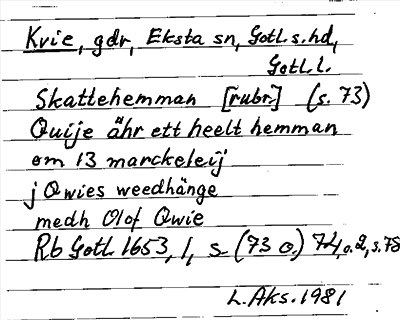 Kvie, gdr, Eksta sn, Gotl. s. hd,
Gotl. l.
Skattehemman [rubr.] (s. 73)
Quije ähr ett heelt hemman
om 13 marckeleij
j Qwies weedhänge
medh Olof Qwie
Rb Gotl. 1653, 1, s (73 o.) 74, o. 2, s. 78
L. Aks. 1981